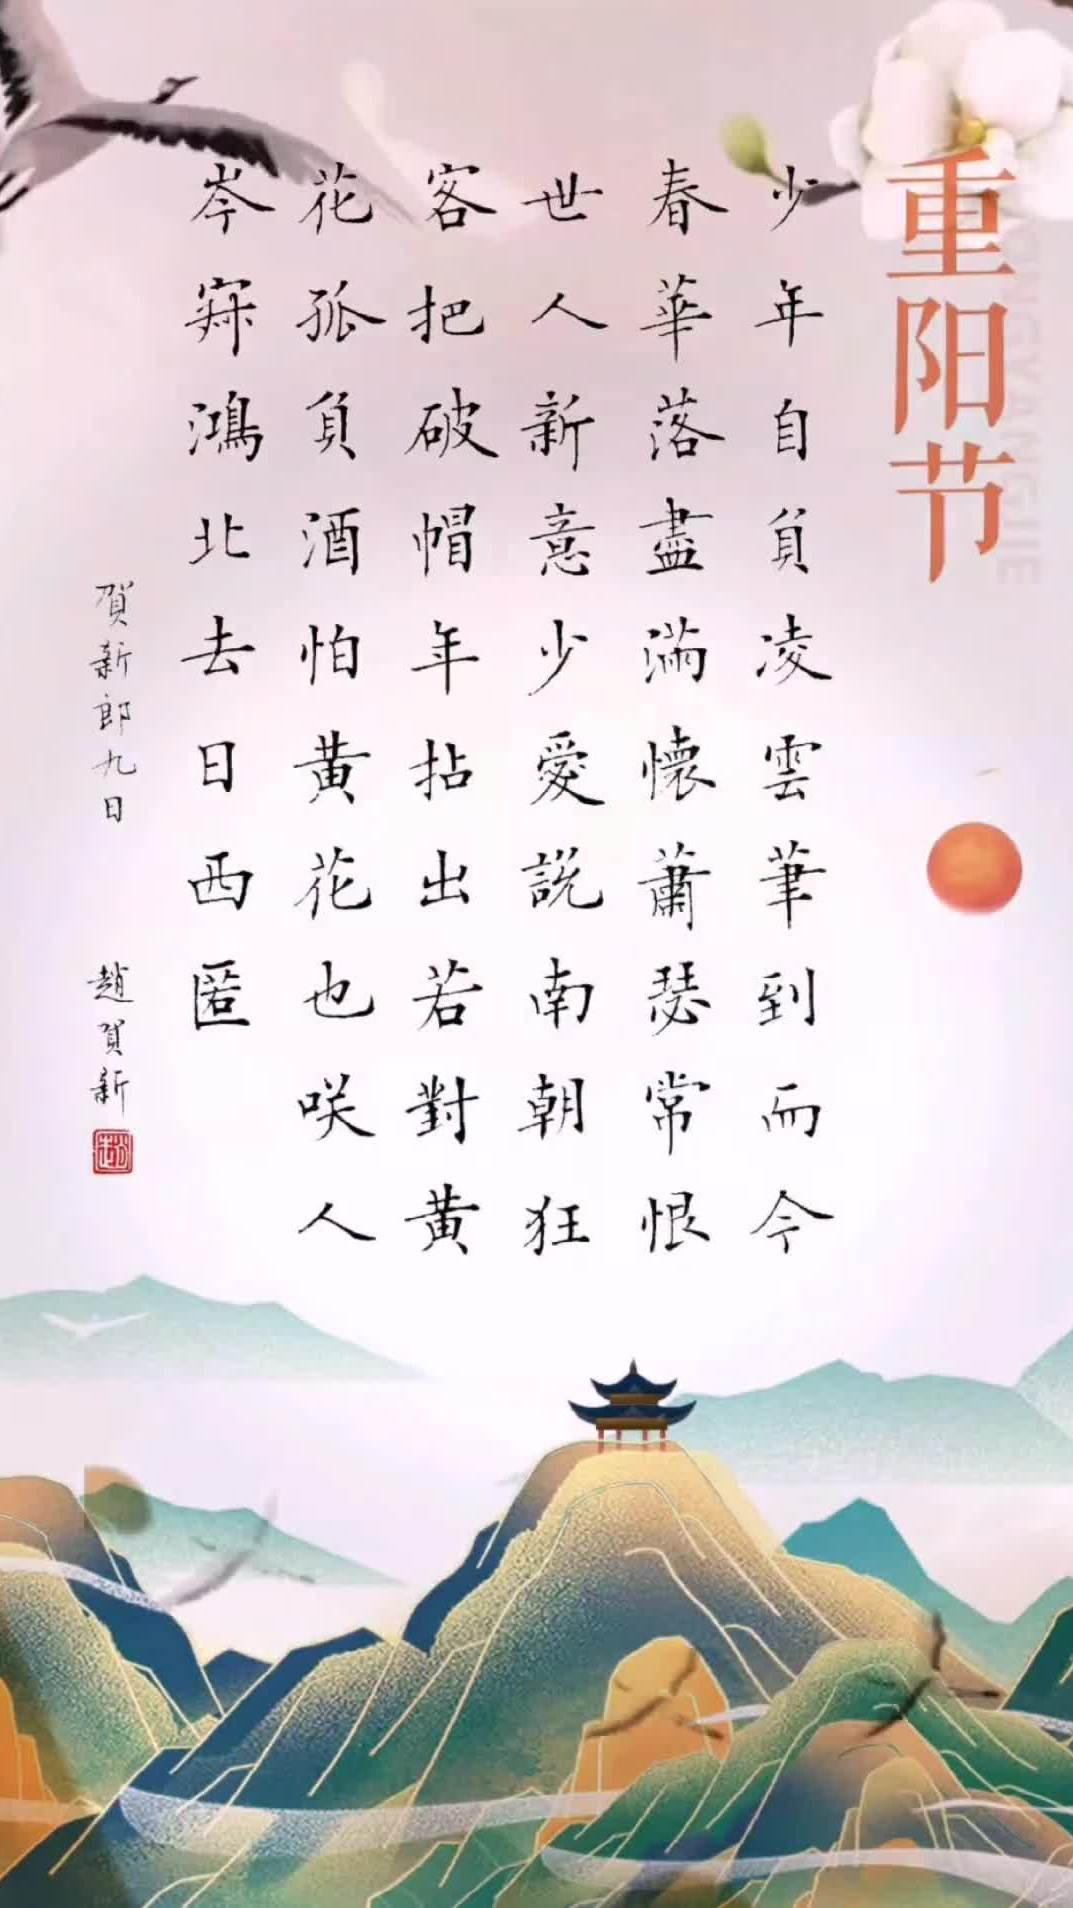 重阳节
少年自負凌雲筆到而今
春華落盡滿懷蕭瑟常恨
世人新意少愛說南朝狂
客把破帽年年拈出若對黃
花孤負酒怕黃花也咲人
岑寂鴻北去日西匿
賀新郎九日
趙賀新